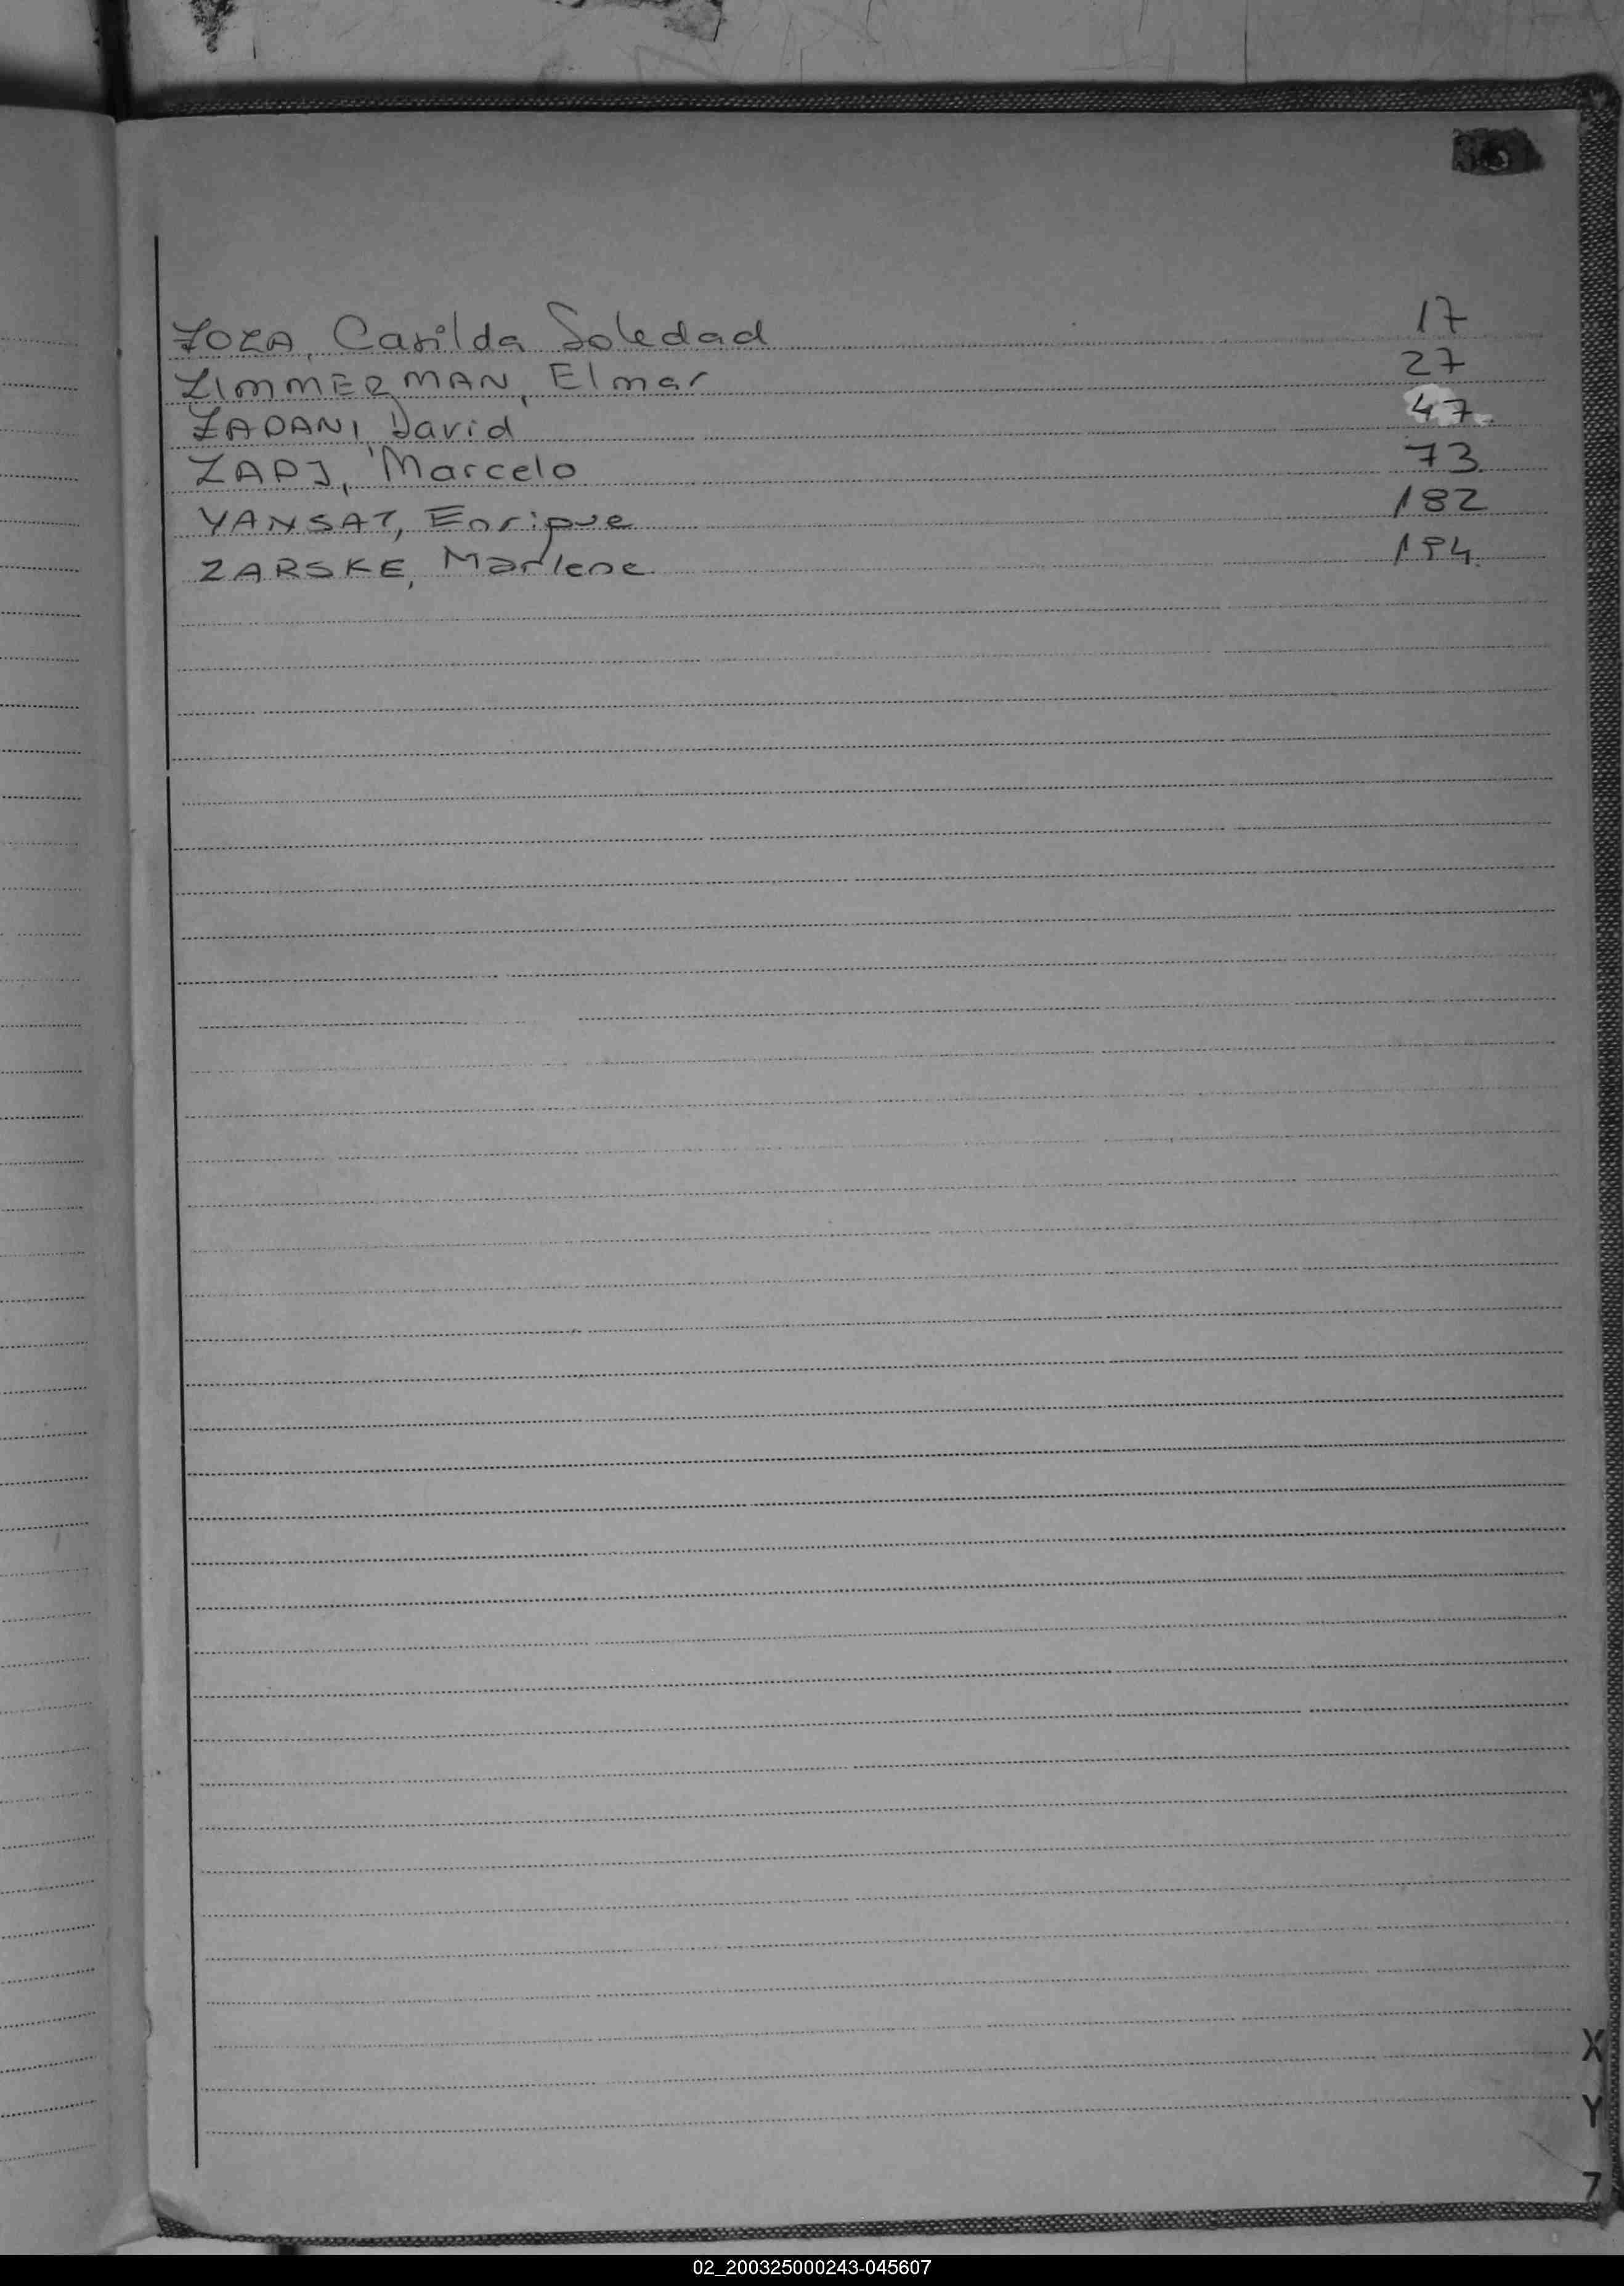 ZOZA, Casilda Soledad 17
ZIMMERMAN, Elmar 27
ZADANI, David 47
ZAPJ, Marcelo 73
YANSAT, Enrique 182
ZARSKE, Marlene 194
X
Y
Z
02_200325000243-045607